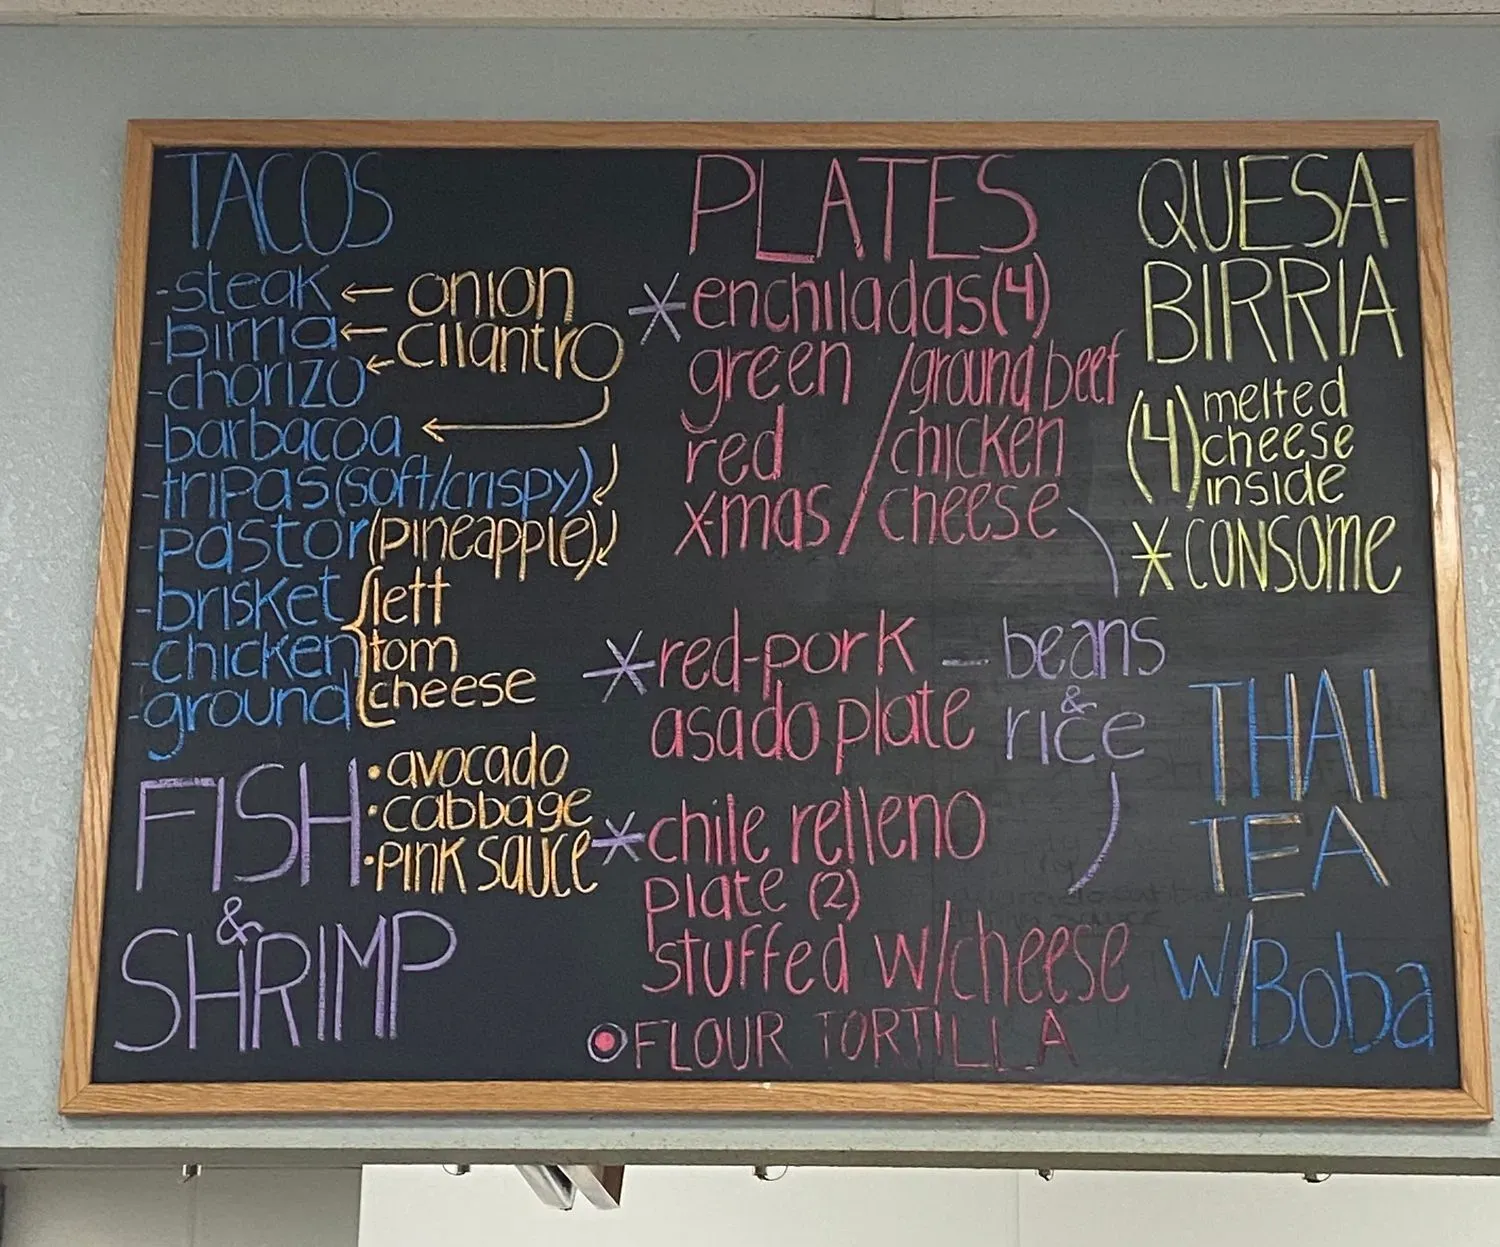 TACOS
-steak ← onion
-birria ← cilantro
-chorizo ←
-barbacoa ←
-tripas (soft/crispy)
-pastor (pineapple)
-brisket { lett
-chicken tom
-ground cheese
FISH • avocado
• cabbage
• PINK SAUCE
&
SHRIMP
PLATES
* enchiladas (4)
green / ground beef
red / chicken
x-mas / cheese
* red-pork — beans
asado plate & rice
* chile relleno
plate (2)
stuffed w/cheese
FLOUR TORTILLA
QUESA-
BIRRIA
(4) melted
cheese
inside
* CONSOME
THAI
TEA
w/Boba